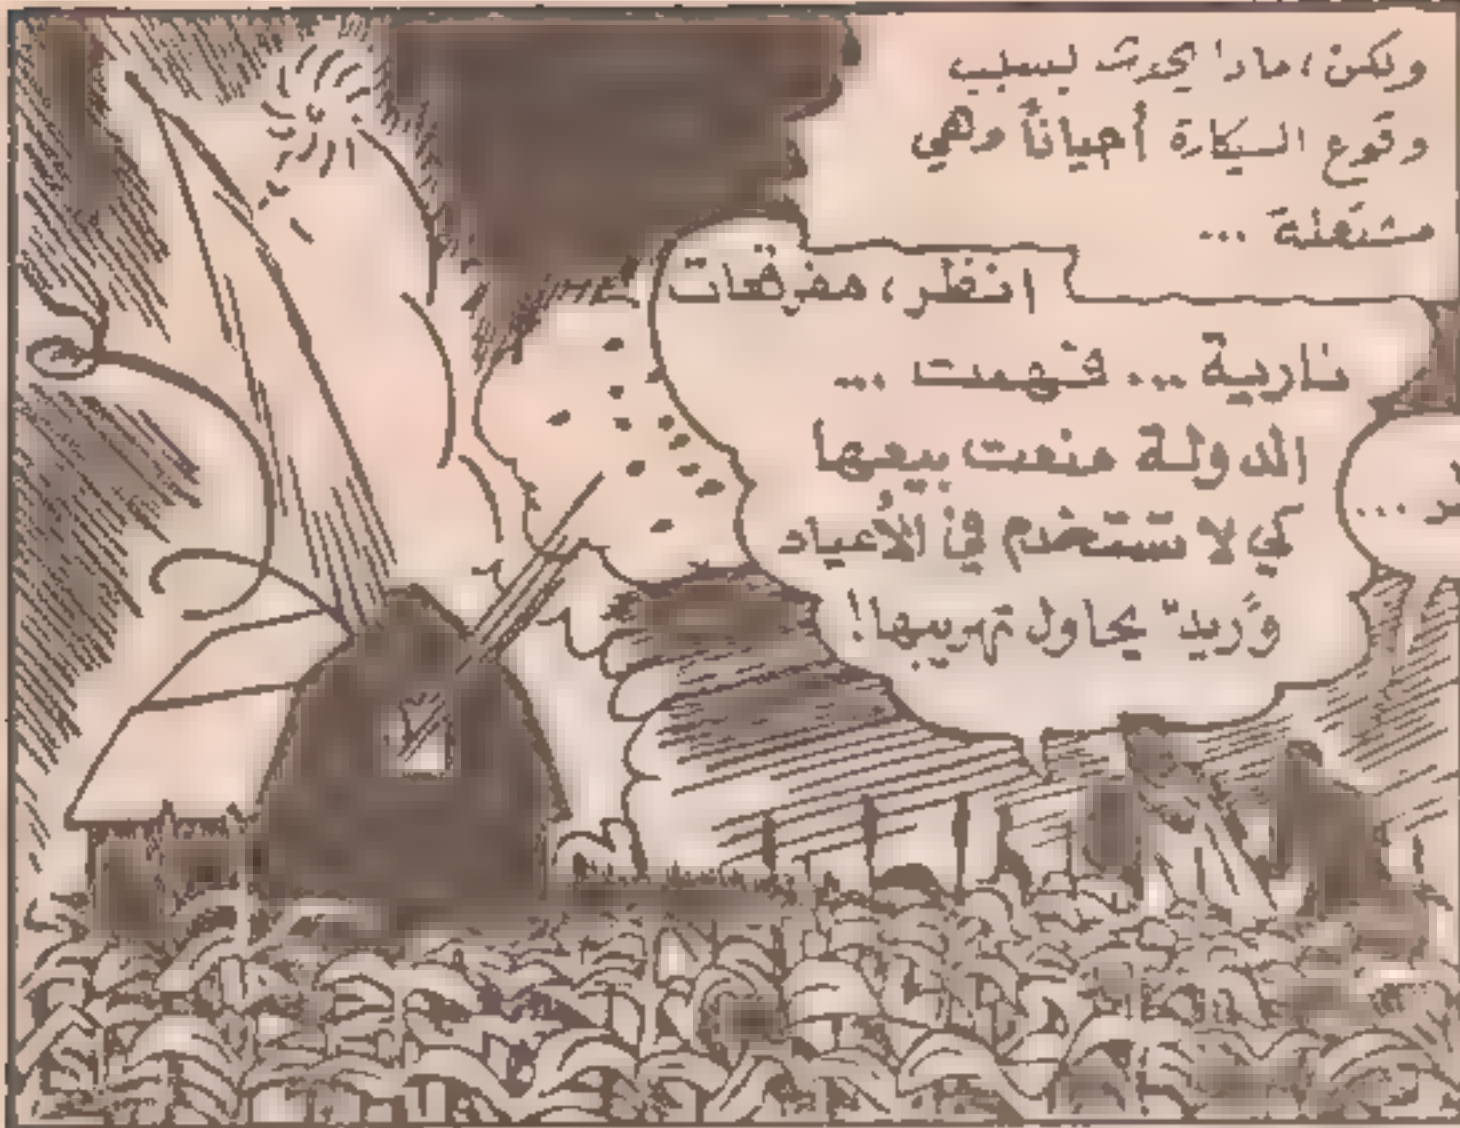 ولكن، ماذا يحدث لسبب
وقوع السيكارة أحياناً وهي
مشتعلة ...
انظر، مفرقعات
نارية ... فهمت ...
الدولة منعت بيعها
كي لا تستخدم في الأعياد
و"ريد" يحاول تهريبها!